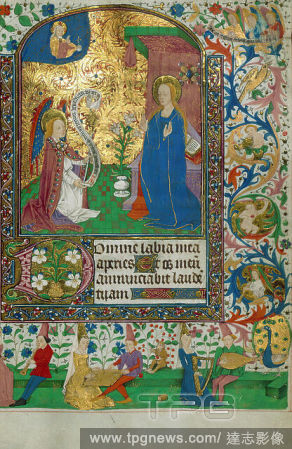 Domine labia mea
aperies Et os meū
annunciabit laudē
tuam
TPG
www.tpgnews.com / 達志影像